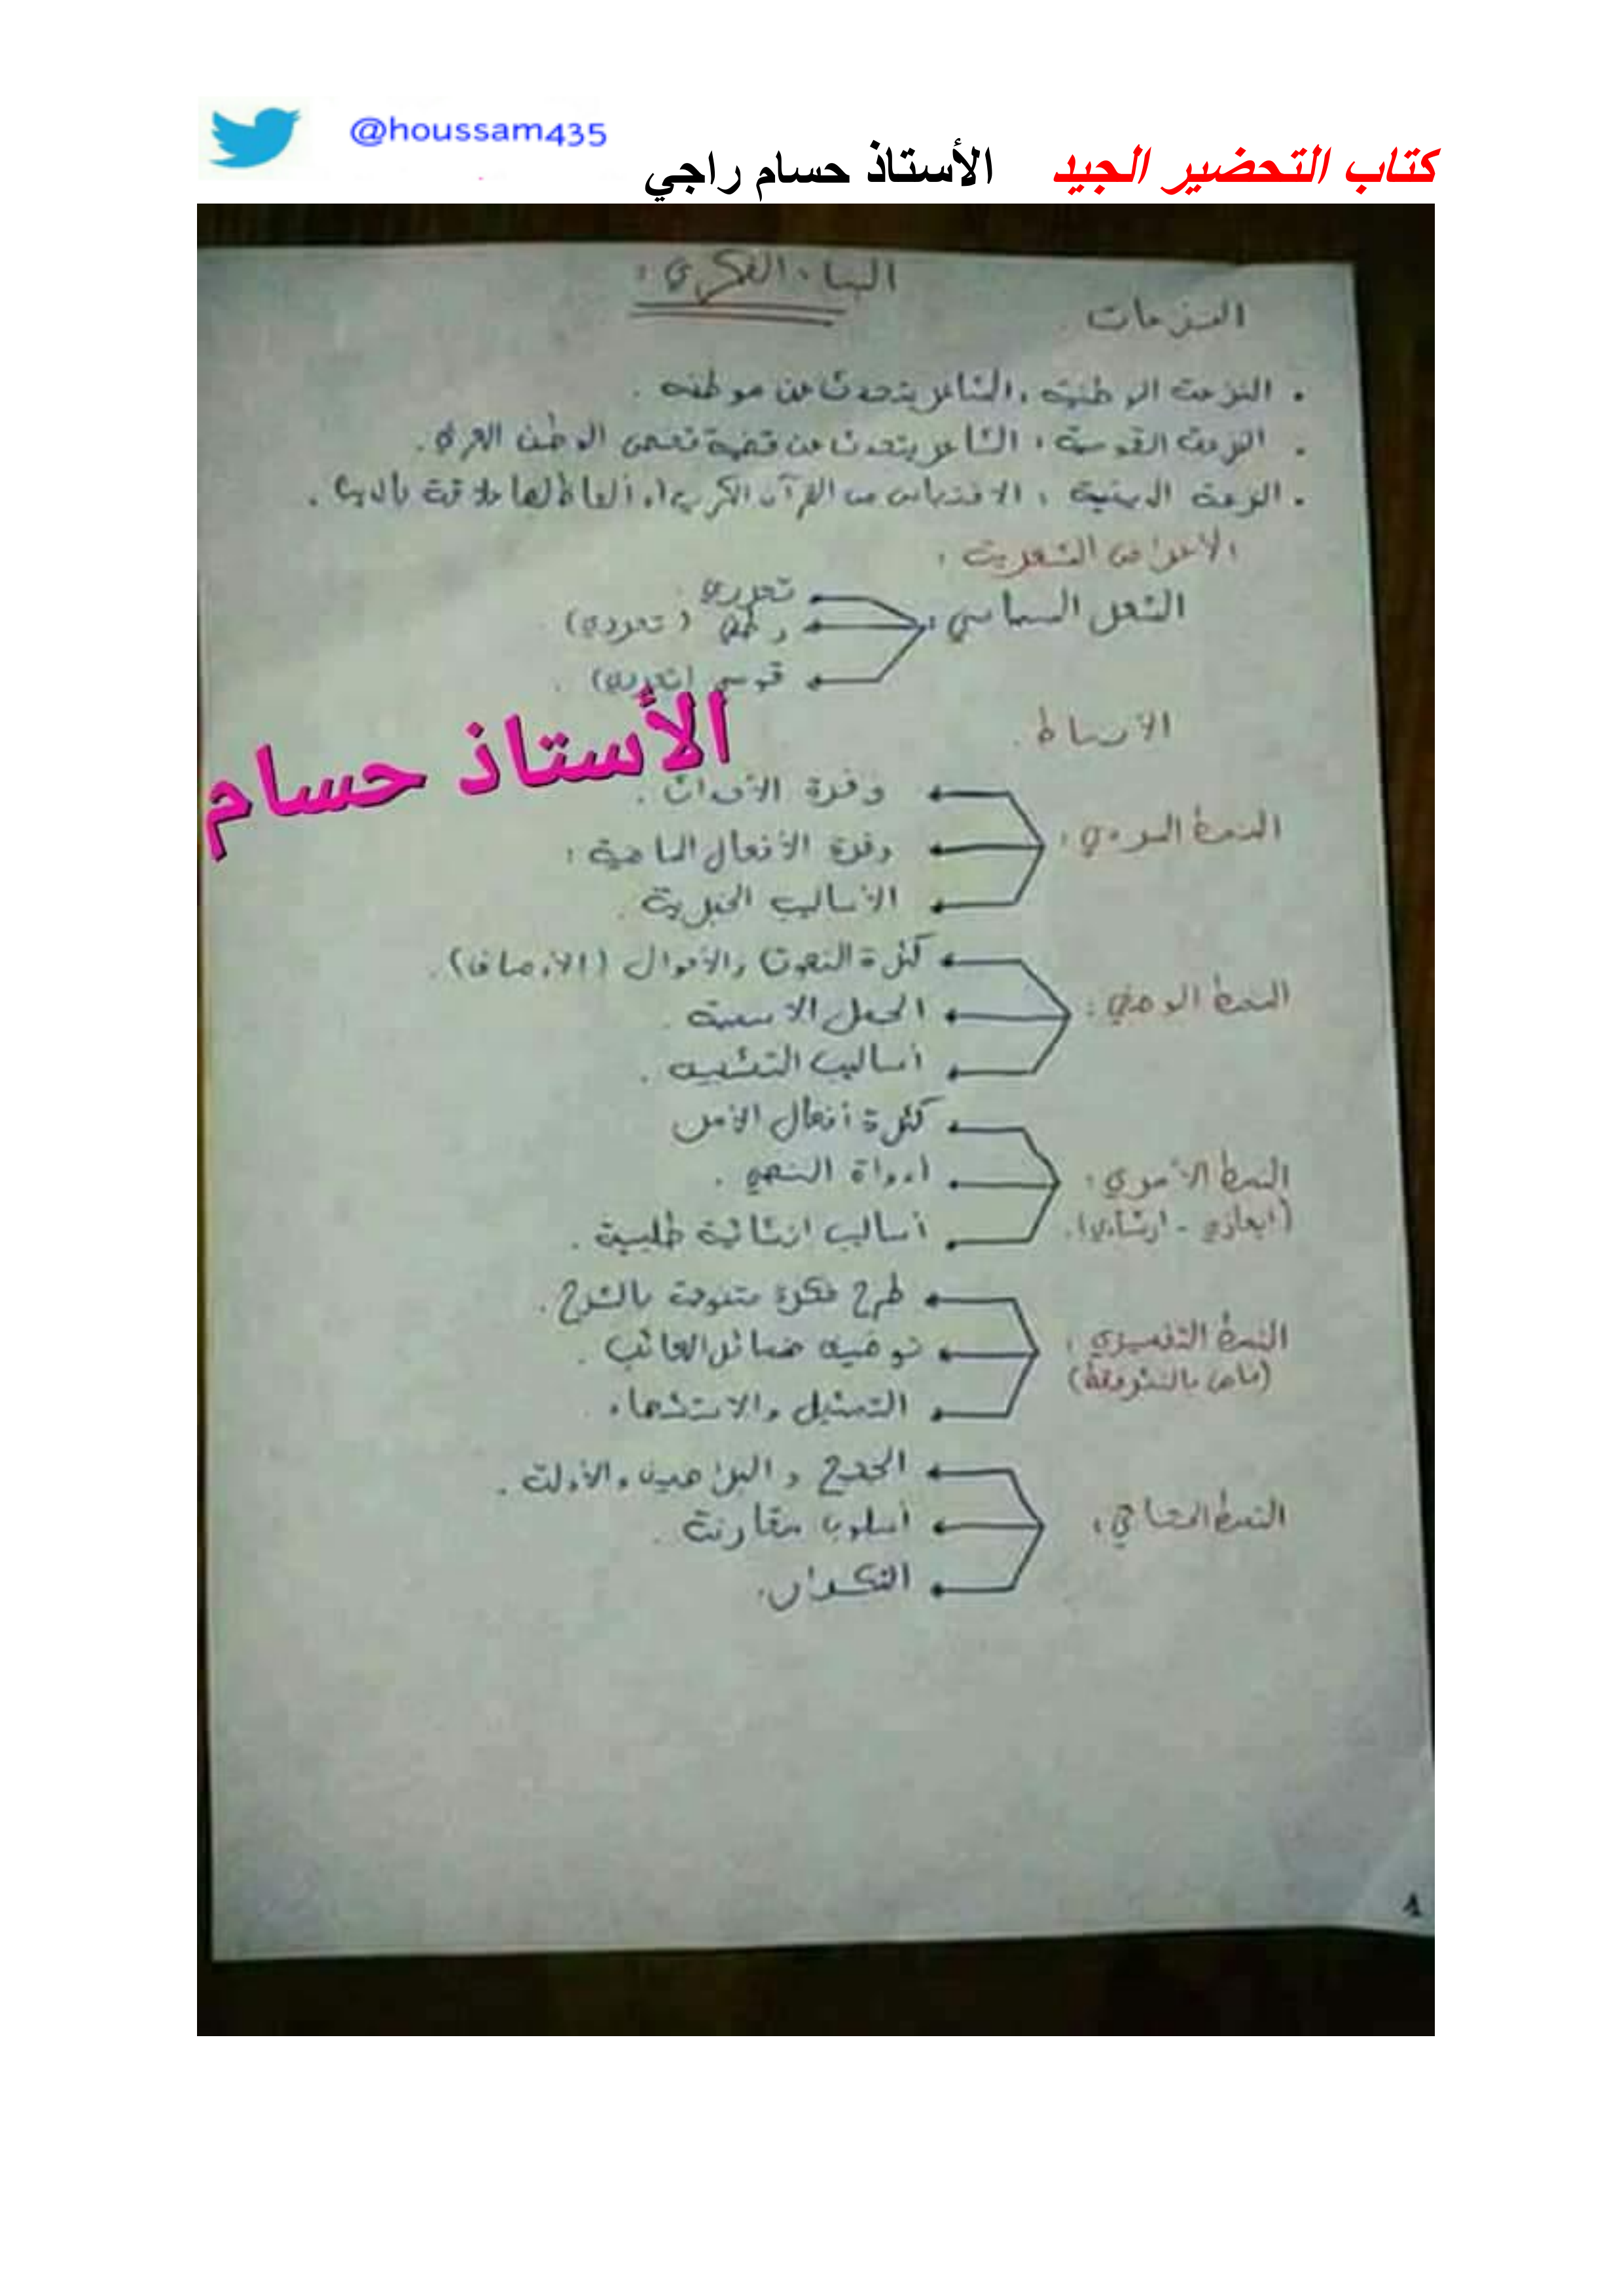 @houssam435
كتاب التحضير الجيد الأستاذ حسام راجي
البناء الفكري :
النزعات
. النزعة الوطنية : الشاعر يتحدث عن موطنه .
. النزعة القومية : الشاعر يتحدث عن قضية تخص الوطن العربي .
. النزعة الدينية : الاقتباس من القرآن الكريم / ألفاظ لها علاقة بالدين .
الأغراض الشعرية :
الشعر السياسي :
تحرري
وطني ( تحرري )
قومي (تحرري) .
الأنماط .
الأستاذ حسام
النمط السردي :
وفرة الأحداث .
وفرة الأفعال الماضية :
الأساليب الخبرية .
النمط الوصفي :
كثرة النعوت والأحوال (الأوصاف) .
الجمل الاسمية .
أساليب التشبيه .
النمط الأمري :
(ايعازي - ارشادي) .
كثرة أفعال الأمر
أدواة النهي .
أساليب انشائية طلبية .
النمط التفسيري :
(خاص بالنثر فقط)
طرح فكرة متبوعة بالشرح .
توظيف ضمائر الغائب .
التمثيل والاستشهاد .
النمط الحجاجي :
الحجج و البراهين والأدلة .
أسلوب مقارنة .
التكرار .
1